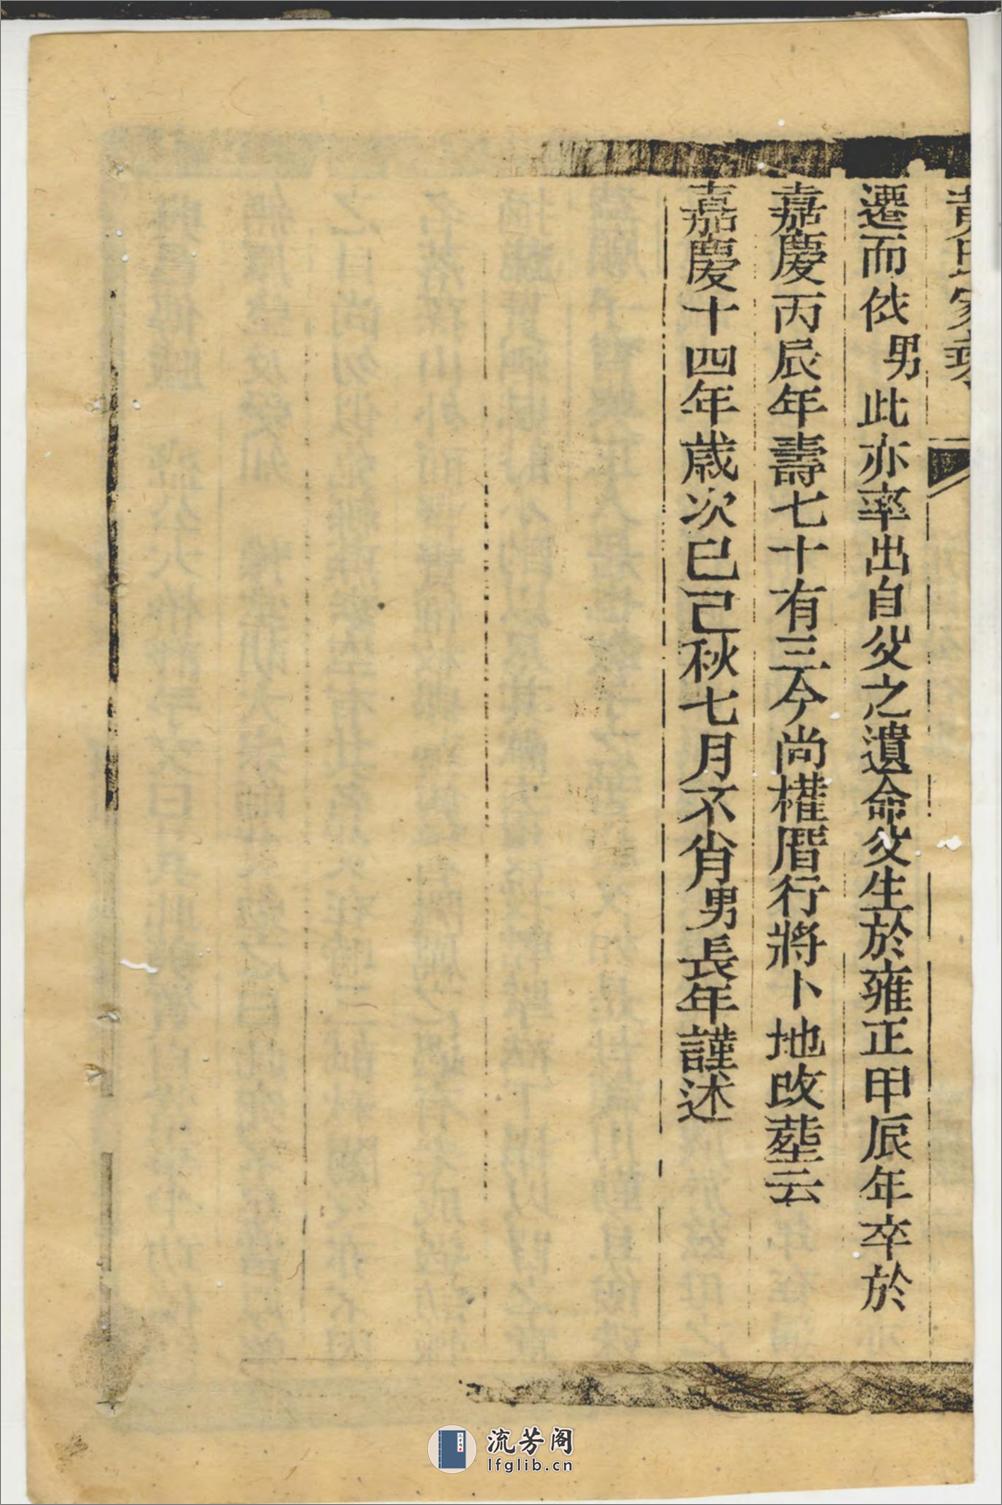 黃氏家乘
遷而依男此亦率出自父之遺命父生於雍正甲辰年卒於
嘉慶丙辰年壽七十有三今尚權厝行將卜地改塟云
嘉慶十四年歲次已己秋七月不肖男長年謹述
流芳阁
lfglib.cn